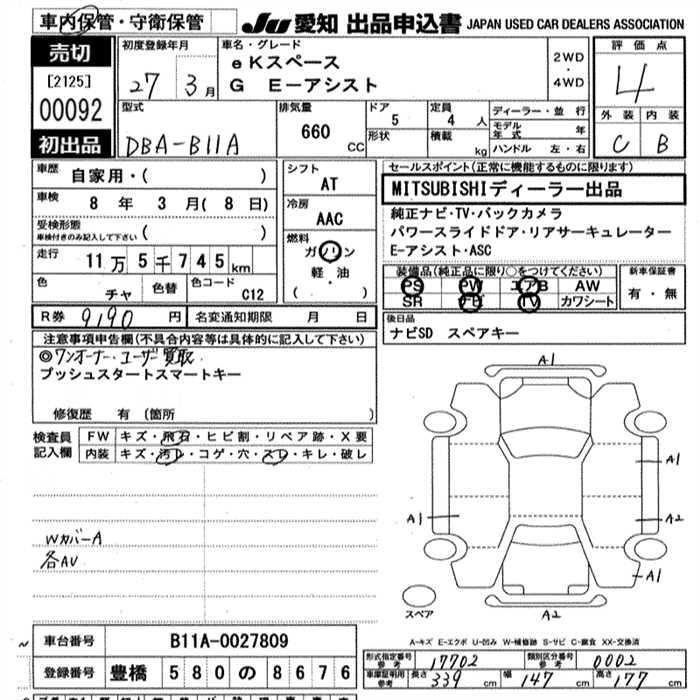 車内保管・守衛保管
JU 愛知 出品申込書 JAPAN USED CAR DEALERS ASSOCIATION
売切
[2125]
00092
初出品
初度登録年月
27年 3月
車名・グレード
eKスペース
G E-アシスト
2WD
・
4WD
評価点
4
外装 内装
C B
型式
DBA-B11A
排気量
660 cc
ドア
5
形状
定員
4 人
積載 kg
ディーラー・並行
モデル年式 年
ハンドル 左・右
車歴 自家用・( )
車検 8 年 3 月( 8 日)
受検形態
車検付きのみ記入して下さい ( )
走行 11万 5千745km
色 チャ 色替 色コード C12
シフト
AT
冷房
AAC
燃料
ガソリン
軽・油
( )
セールスポイント(正常に機能するものに限ります)
MITSUBISHIディーラー出品
純正ナビ・TV・バックカメラ
パワースライドドア・リアサーキュレーター
E-アシスト・ASC
装備品(純正品に限り○をつけてください)
PS PW エアB AW
SR TV カワシート
新車保証書
有・無
R券 9190 円 名変通知期限 月 日
後日品
ナビSD スペアキー
注意事項申告欄(不具合内容等は具体的に記入して下さい)
◎ワンオーナー、ユーザー買取
プッシュスタートスマートキー
修復歴 有 (箇所 )
検査員記入欄
FW キズ・飛石・ヒビ割・リペア跡・X要
内装 キズ・汚レ・コゲ・穴・スレ・キレ・破レ
WカバーA
各AU
A1
A1
A1
A2
A1
A2
スペア
A-キズ E-エクボ U-凹み W-補修跡 S-サビ C-腐食 XX-交換済
車台番号 B11A-0027809
登録番号 豊橋 580の8676
形式指定番号 参考 17702 類別区分番号 参考 0002
車庫証明用 参考 長さ 339 cm 幅 147 cm 高さ 177 cm